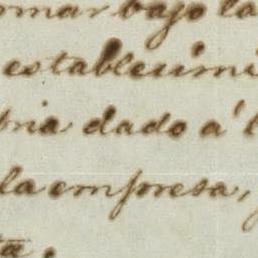 omar bajo la
establecimi
ria dado a' l
la empresa,
ta.